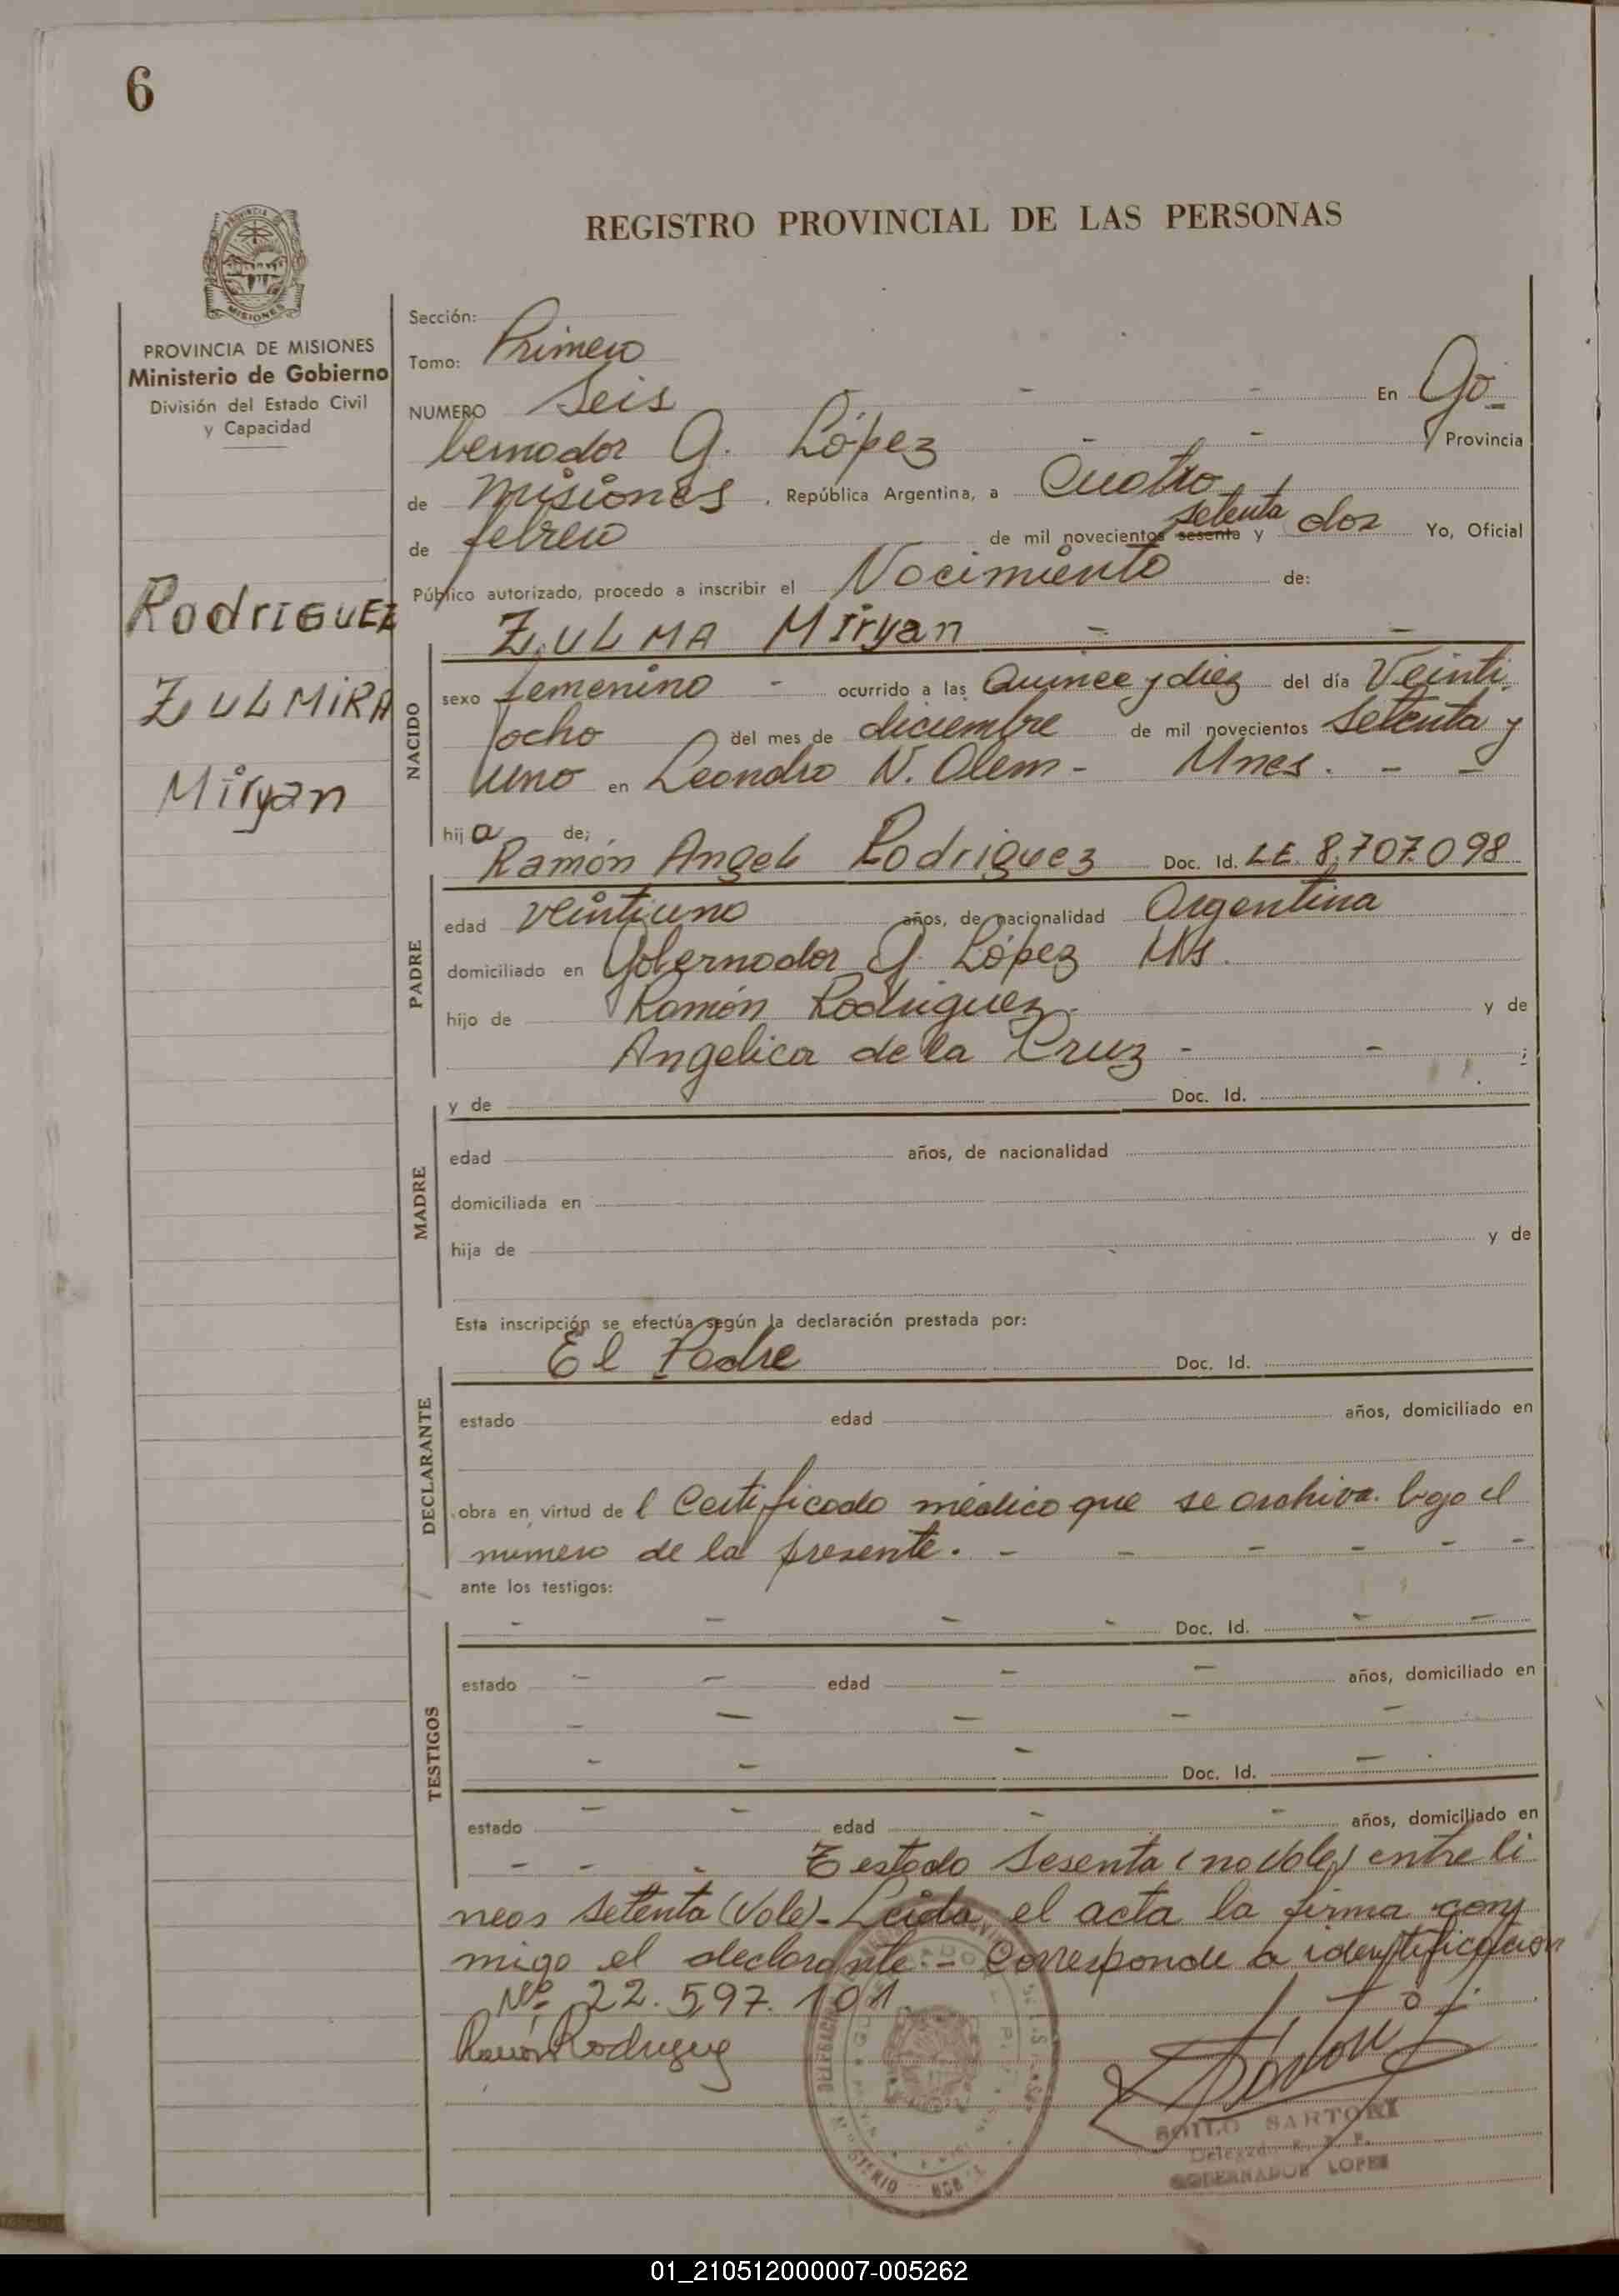 6
REGISTRO PROVINCIAL DE LAS PERSONAS
PROVINCIA DE MISIONES
Ministerio de Gobierno
División del Estado Civil
y Capacidad
Rodriguez
ZULMIRA
Miryan
Sección:
Tomo: Primero
NUMERO Seis - - - En Go-
bernador G. López - - Provincia
de Misiones, República Argentina, a Cuatro
de febrero de mil novecientos sesenta setenta y dos Yo, Oficial
Público autorizado, procedo a inscribir el Nacimiento de:
ZULMA Miryan - -
NACIDO
sexo femenino - ocurrido a las Quince y diez del día Veinti
ocho del mes de diciembre de mil novecientos Setenta y
uno en Leandro N. Alem - Mnes. - -
hija de;
Ramón Angel Rodriguez Doc. Id. LE. 8.707.098
PADRE
edad veintiuno años, de nacionalidad Argentina
domiciliado en Gobernador G. López Mns.
hijo de Ramón Rodriguez y de
Angelica de la Cruz - - ;
MADRE
y de Doc. Id.
edad años, de nacionalidad
domiciliada en
hija de y de
Esta inscripción se efectúa según la declaración prestada por:
El Padre Doc. Id.
DECLARANTE
estado edad años, domiciliado en
obra en virtud del Certificado médico que se archiva bajo el
numero de la presente. - - - - - -
ante los testigos:
- - - - Doc. Id. - -
TESTIGOS
estado - - edad - - años, domiciliado en
- - - - -
- - - Doc. Id. -
estado - - edad - - años, domiciliado en
- - - Testado Sesenta (no Vale) entre li
neas setenta (Vale) - Leida el acta la firma con
migo el declarante. - Corresponde a identificacion
Nº 22.597.101
Ramón Rodriguez
SARTORI
Delegado R. P. P.
GOBERNADOR LOPEZ
01_210512000007-005262